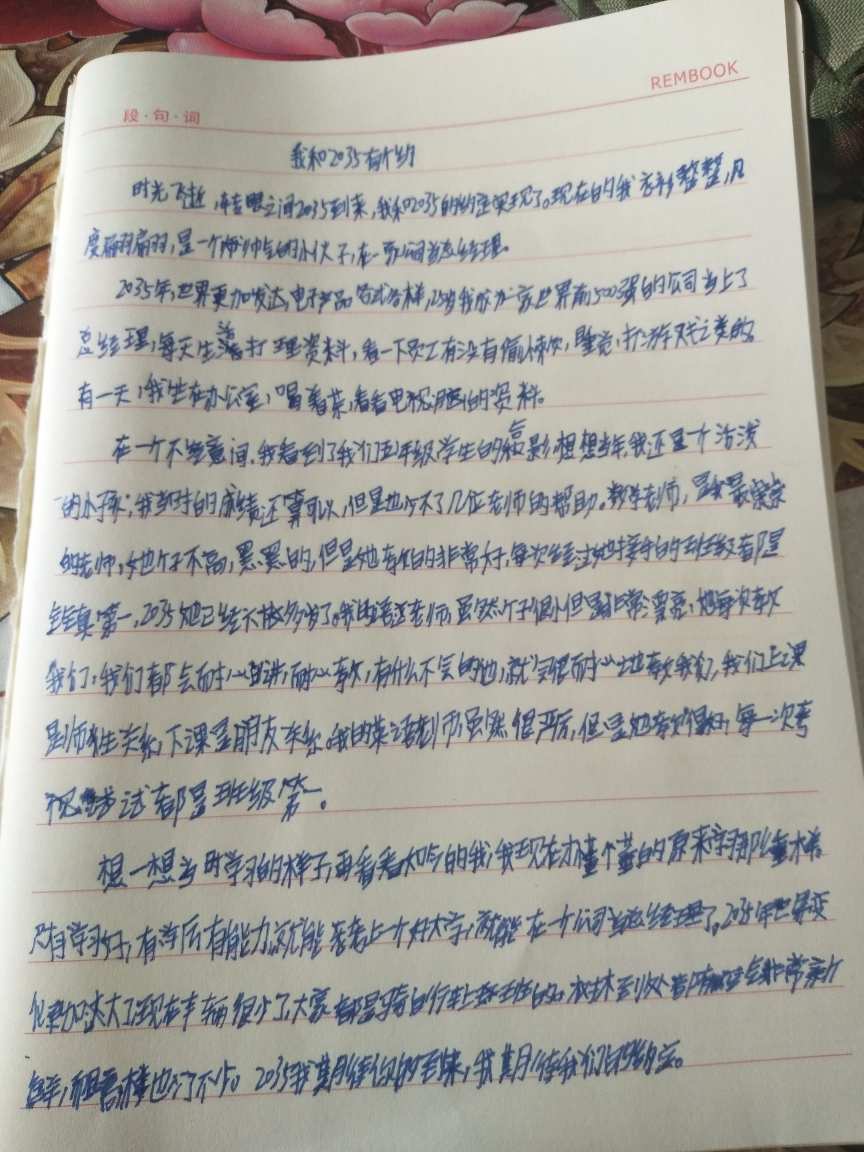 REMBOOK
段·句·词
我和2035有个约
时光飞逝,转眼之间2035到来,我和2035的约定实现了。现在的我整整,风
度翩翩,是一个帅气的小伙子,在一家公司当总经理。
2035年,世界更加发达,电子产品各式各样,25岁我成为一家世界前500强的公司当上了
总经理,每天坐着打理资料,看一下员工有没有偷懒,睡觉,打游戏之类的。
有一天,我坐在办公室,喝着茶,看看电视里的资料。
在一个不经意间,我看到了我们五年级学生的合影,想想当年,我还是一个活泼
的小孩;我当时的成绩还算可以,但是也少不了几位老师的帮助。数学老师,是我最亲亲
的老师,她个子不高,黑黑的,但是她教的非常好,每次经过她接手的班级都是
全镇第一,2035她已经六十多岁了。我的语文老师,虽然个子很小但是非常漂亮,她每次教
我们,我们都会耐心的讲,耐心教,有什么不会的他,就会很耐心地教我们,我们上课
是师生关系,下课是朋友关系。我的英语老师,虽然很严厉,但是她教得很好,每一次考
试都是班级第一。
想一想当时学习的样子,再看看如今的我,我现在才懂的原来学习那么重要
只有学习好,有学历有能力,就能考上一个好大学,就能在一个公司当总经理了。2035年世界变
化更加大了,现在车辆很少了,大家都是骑自行车上班的。树木到处都有,空气非常新
鲜,高楼也少不了。2035我期待你的到来,我期待我们的约定。